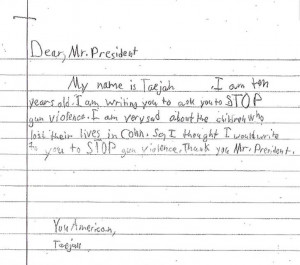 Dear, Mr. President
My name is Taejah . I am ten
years old. I am writing you to ask you to STOP
gun violence. I am very sad about the children who
lost their lives in Conn. So, I thought I would write
to you to STOP gun violence. Thank you Mr. President.
You American,
Taejah